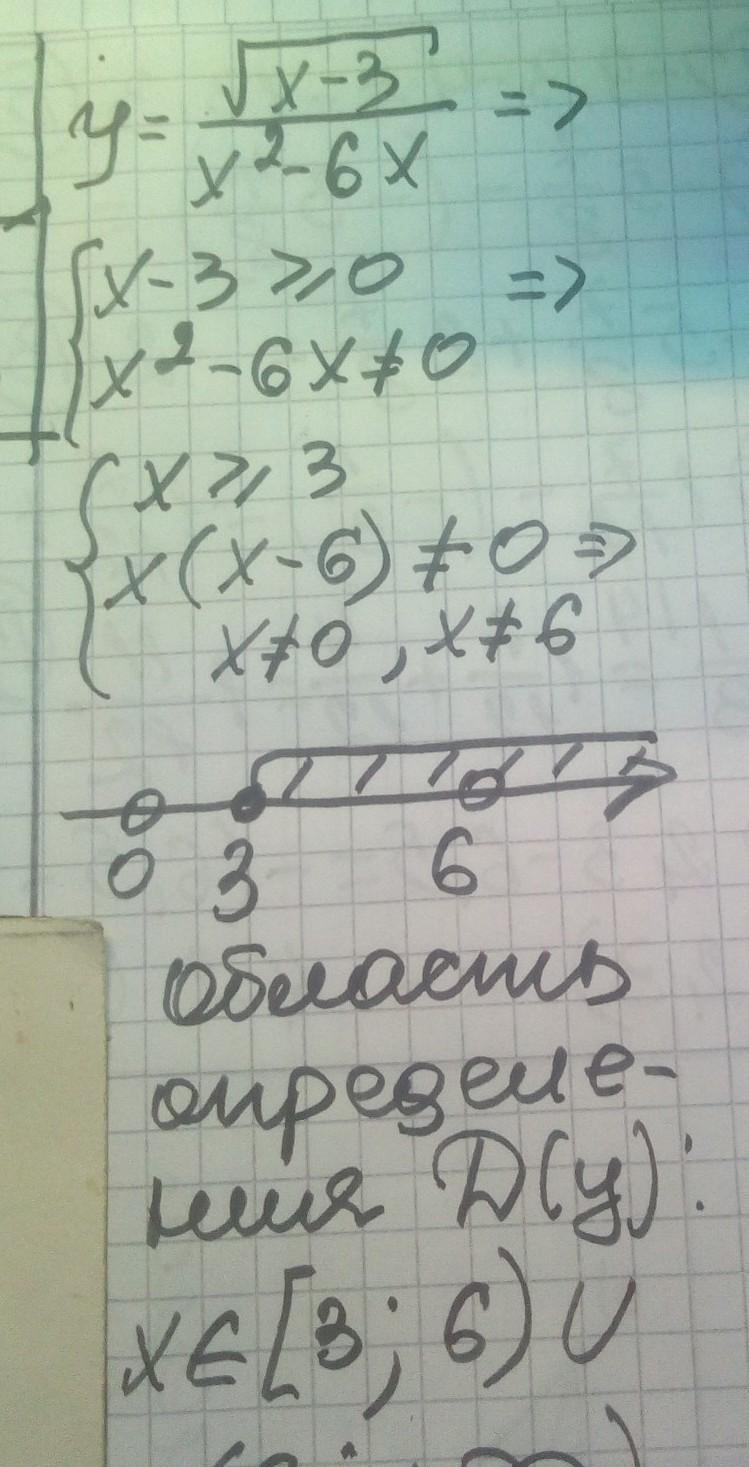 y = √(x-3) / (x²-6x) =>
{ x-3 ⩾ 0 =>
x²-6x ≠ 0
{ x ⩾ 3
x(x-6) ≠ 0 =>
x≠0, x≠6
0 3 6
область
определе-
ния D(y):
x∈[3; 6) ∪